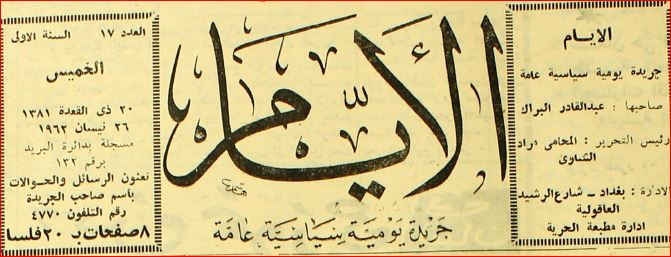 الايام
جريدة يومية سياسية عامة
صاحبها : عبدالقادر البراك
رئيس التحرير : المحامي مراد
الشاوى
الادارة : بغداد ـ شارع الرشيد
العاقولية
ادارة مطبعة الحرية
الأيام
جريدة يومية سياسية عامة
العدد ١٧ السنة الاولى
الخميس
٢٠ ذى القعدة ١٣٨١
٢٦ نيسان ١٩٦٢
مسجلة بدائرة البريد
برقم ١٣٢
تعنون الرسائل والحوالات
باسم صاحب الجريدة
رقم التلفون ٤٧٧٠
٨ صفحات بـ ٢٠ فلسا